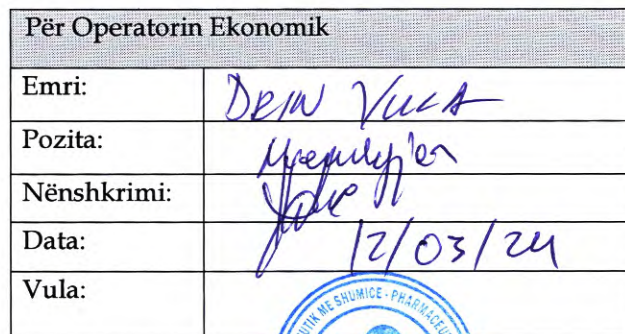 Për Operatorin Ekonomik
Emri: DRIN VULA
Pozita:
Nënshkrimi:
Data: 12/03/24
Vula:
UTIK ME SHUMICE - PHARMACEU